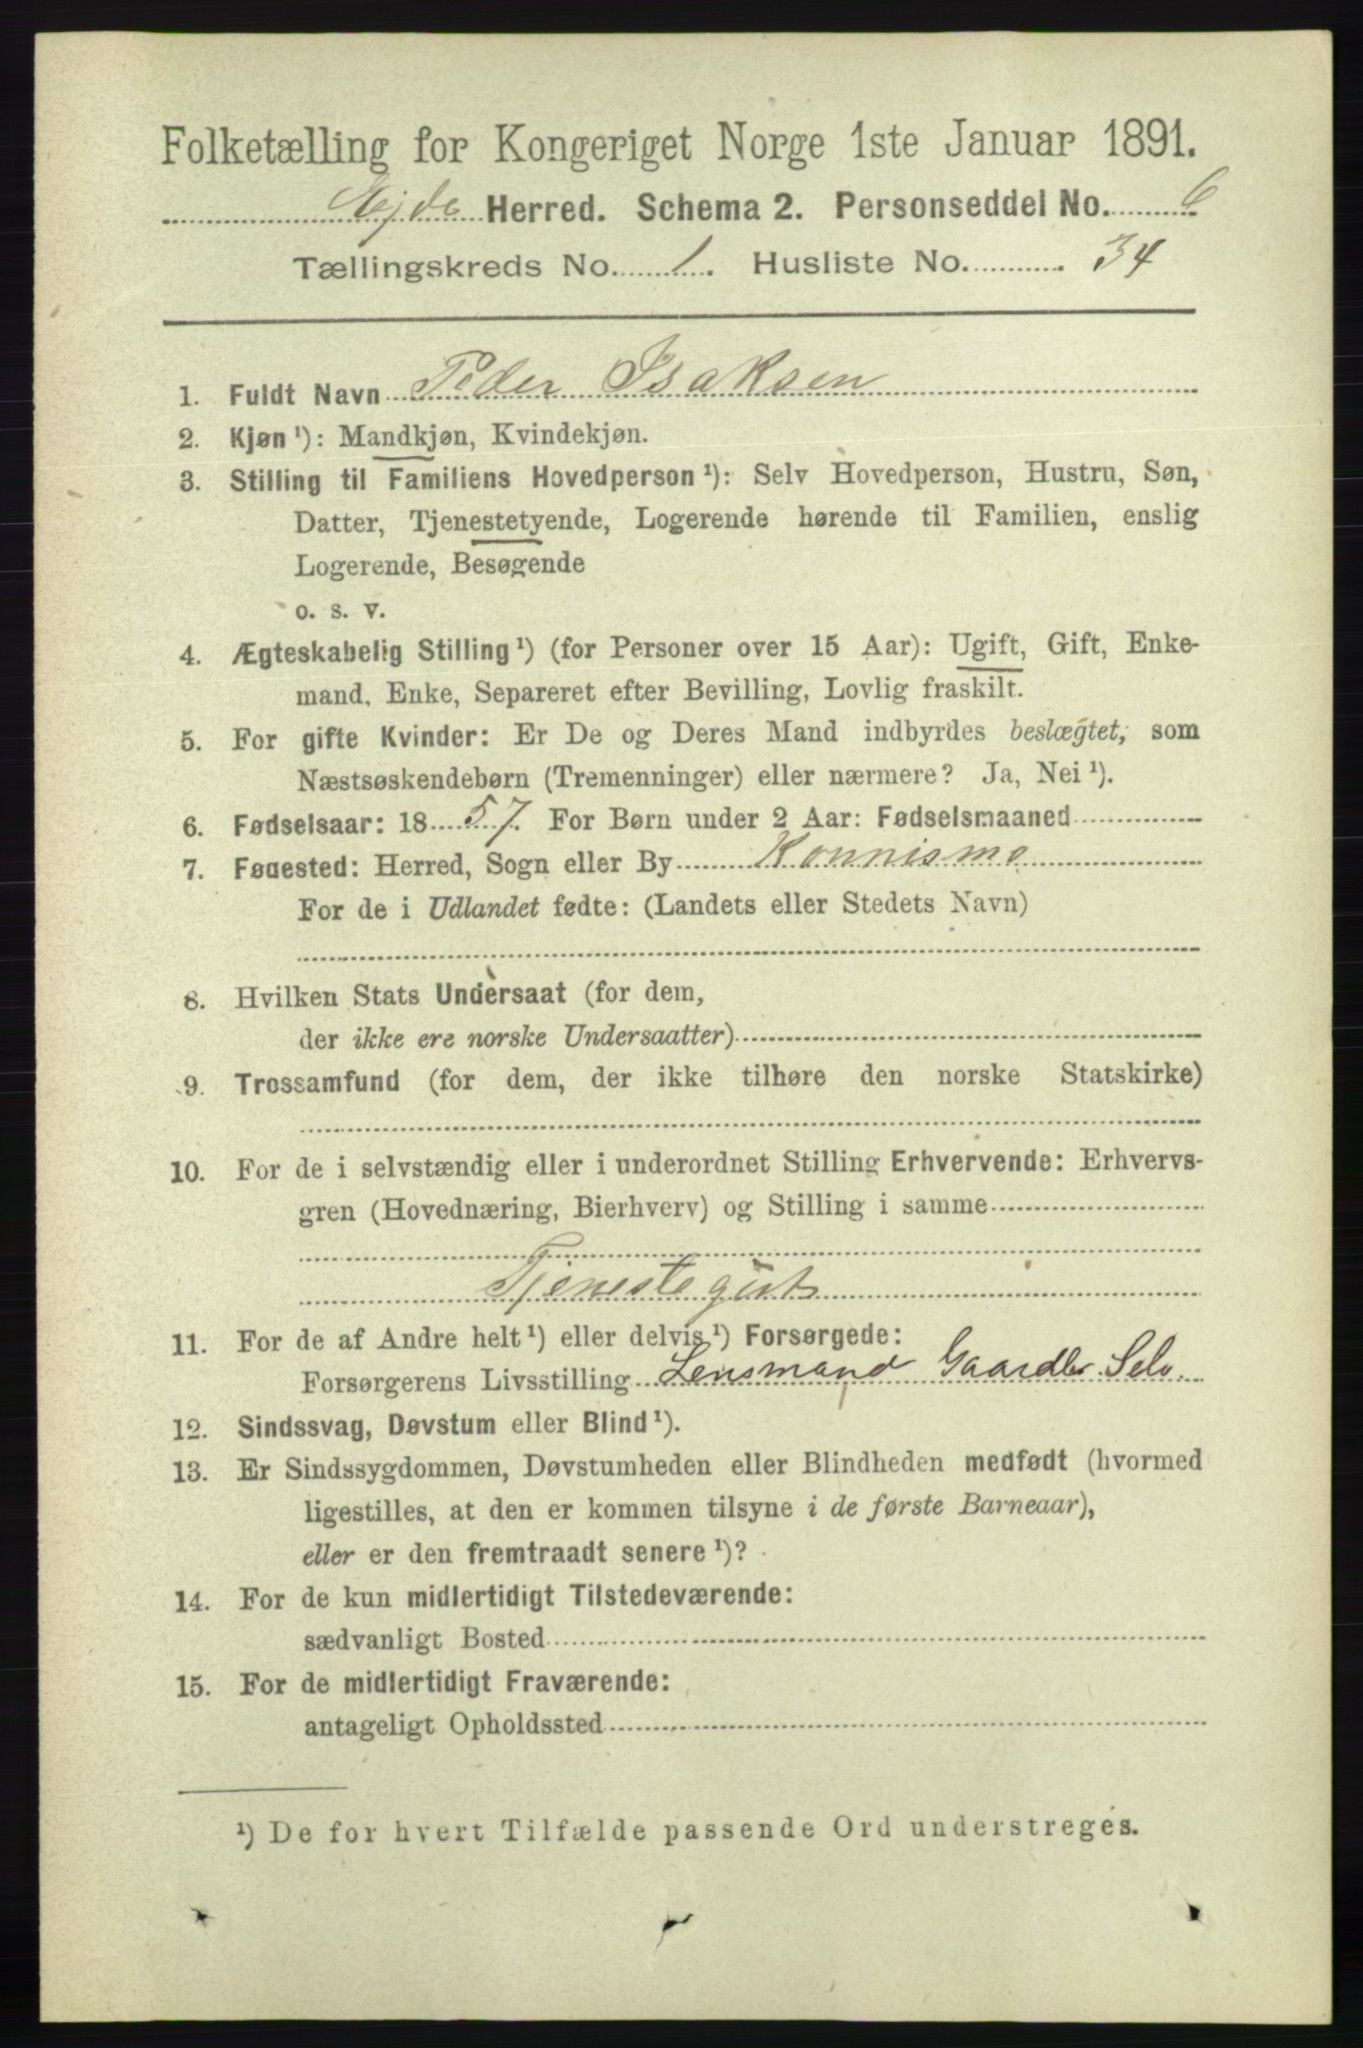 Folketælling for Kongeriget Norge 1ste Januar 1891.
Herred. Schema 2. Personseddel No. 6
Tællingskreds No. 1. Husliste No. 34
1. Fuldt Navn Peder Isaksen
2. Kjøn ¹): Mandkjøn, Kvindekjøn.
3. Stilling til Familiens Hovedperson ¹): Selv Hovedperson, Hustru, Søn,
Datter, Tjenestetyende, Logerende hørende til Familien, enslig
Logerende, Besøgende
o. s. v.
4. Ægteskabelig Stilling ¹) (for Personer over 15 Aar): Ugift, Gift, Enke-
mand, Enke, Separeret efter Bevilling, Lovlig fraskilt.
5. For gifte Kvinder: Er De og Deres Mand indbyrdes beslægtet, som
Næstsøskendebørn (Tremenninger) eller nærmere? Ja, Nei ¹).
6. Fødselsaar: 1857. For Børn under 2 Aar: Fødselsmaaned
7. Fødested: Herred, Sogn eller By Konnismo
For de i Udlandet fødte: (Landets eller Stedets Navn)
8. Hvilken Stats Undersaat (for dem,
der ikke ere norske Undersaatter)
9. Trossamfund (for dem, der ikke tilhøre den norske Statskirke)
10. For de i selvstændig eller i underordnet Stilling Erhvervende: Erhvervs-
gren (Hovednæring, Bierhverv) og Stilling i samme
Tjenestegut
11. For de af Andre helt ¹) eller delvis ¹) Forsørgede:
Forsørgerens Livsstilling Lensmand Gaardbr. Selv.
12. Sindssvag, Døvstum eller Blind ¹).
13. Er Sindssygdommen, Døvstumheden eller Blindheden medfødt (hvormed
ligestilles, at den er kommen tilsyne i de første Barneaar),
eller er den fremtraadt senere ¹)?
14. For de kun midlertidigt Tilstedeværende:
sædvanligt Bosted
15. For de midlertidigt Fraværende:
antageligt Opholdssted
¹) De for hvert Tilfælde passende Ord understreges.